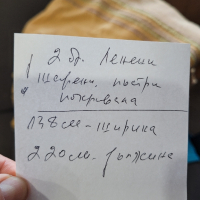 2 бр. Ленени
шарени, пъстри
покривала
138 см - ширина
220 см. дължина